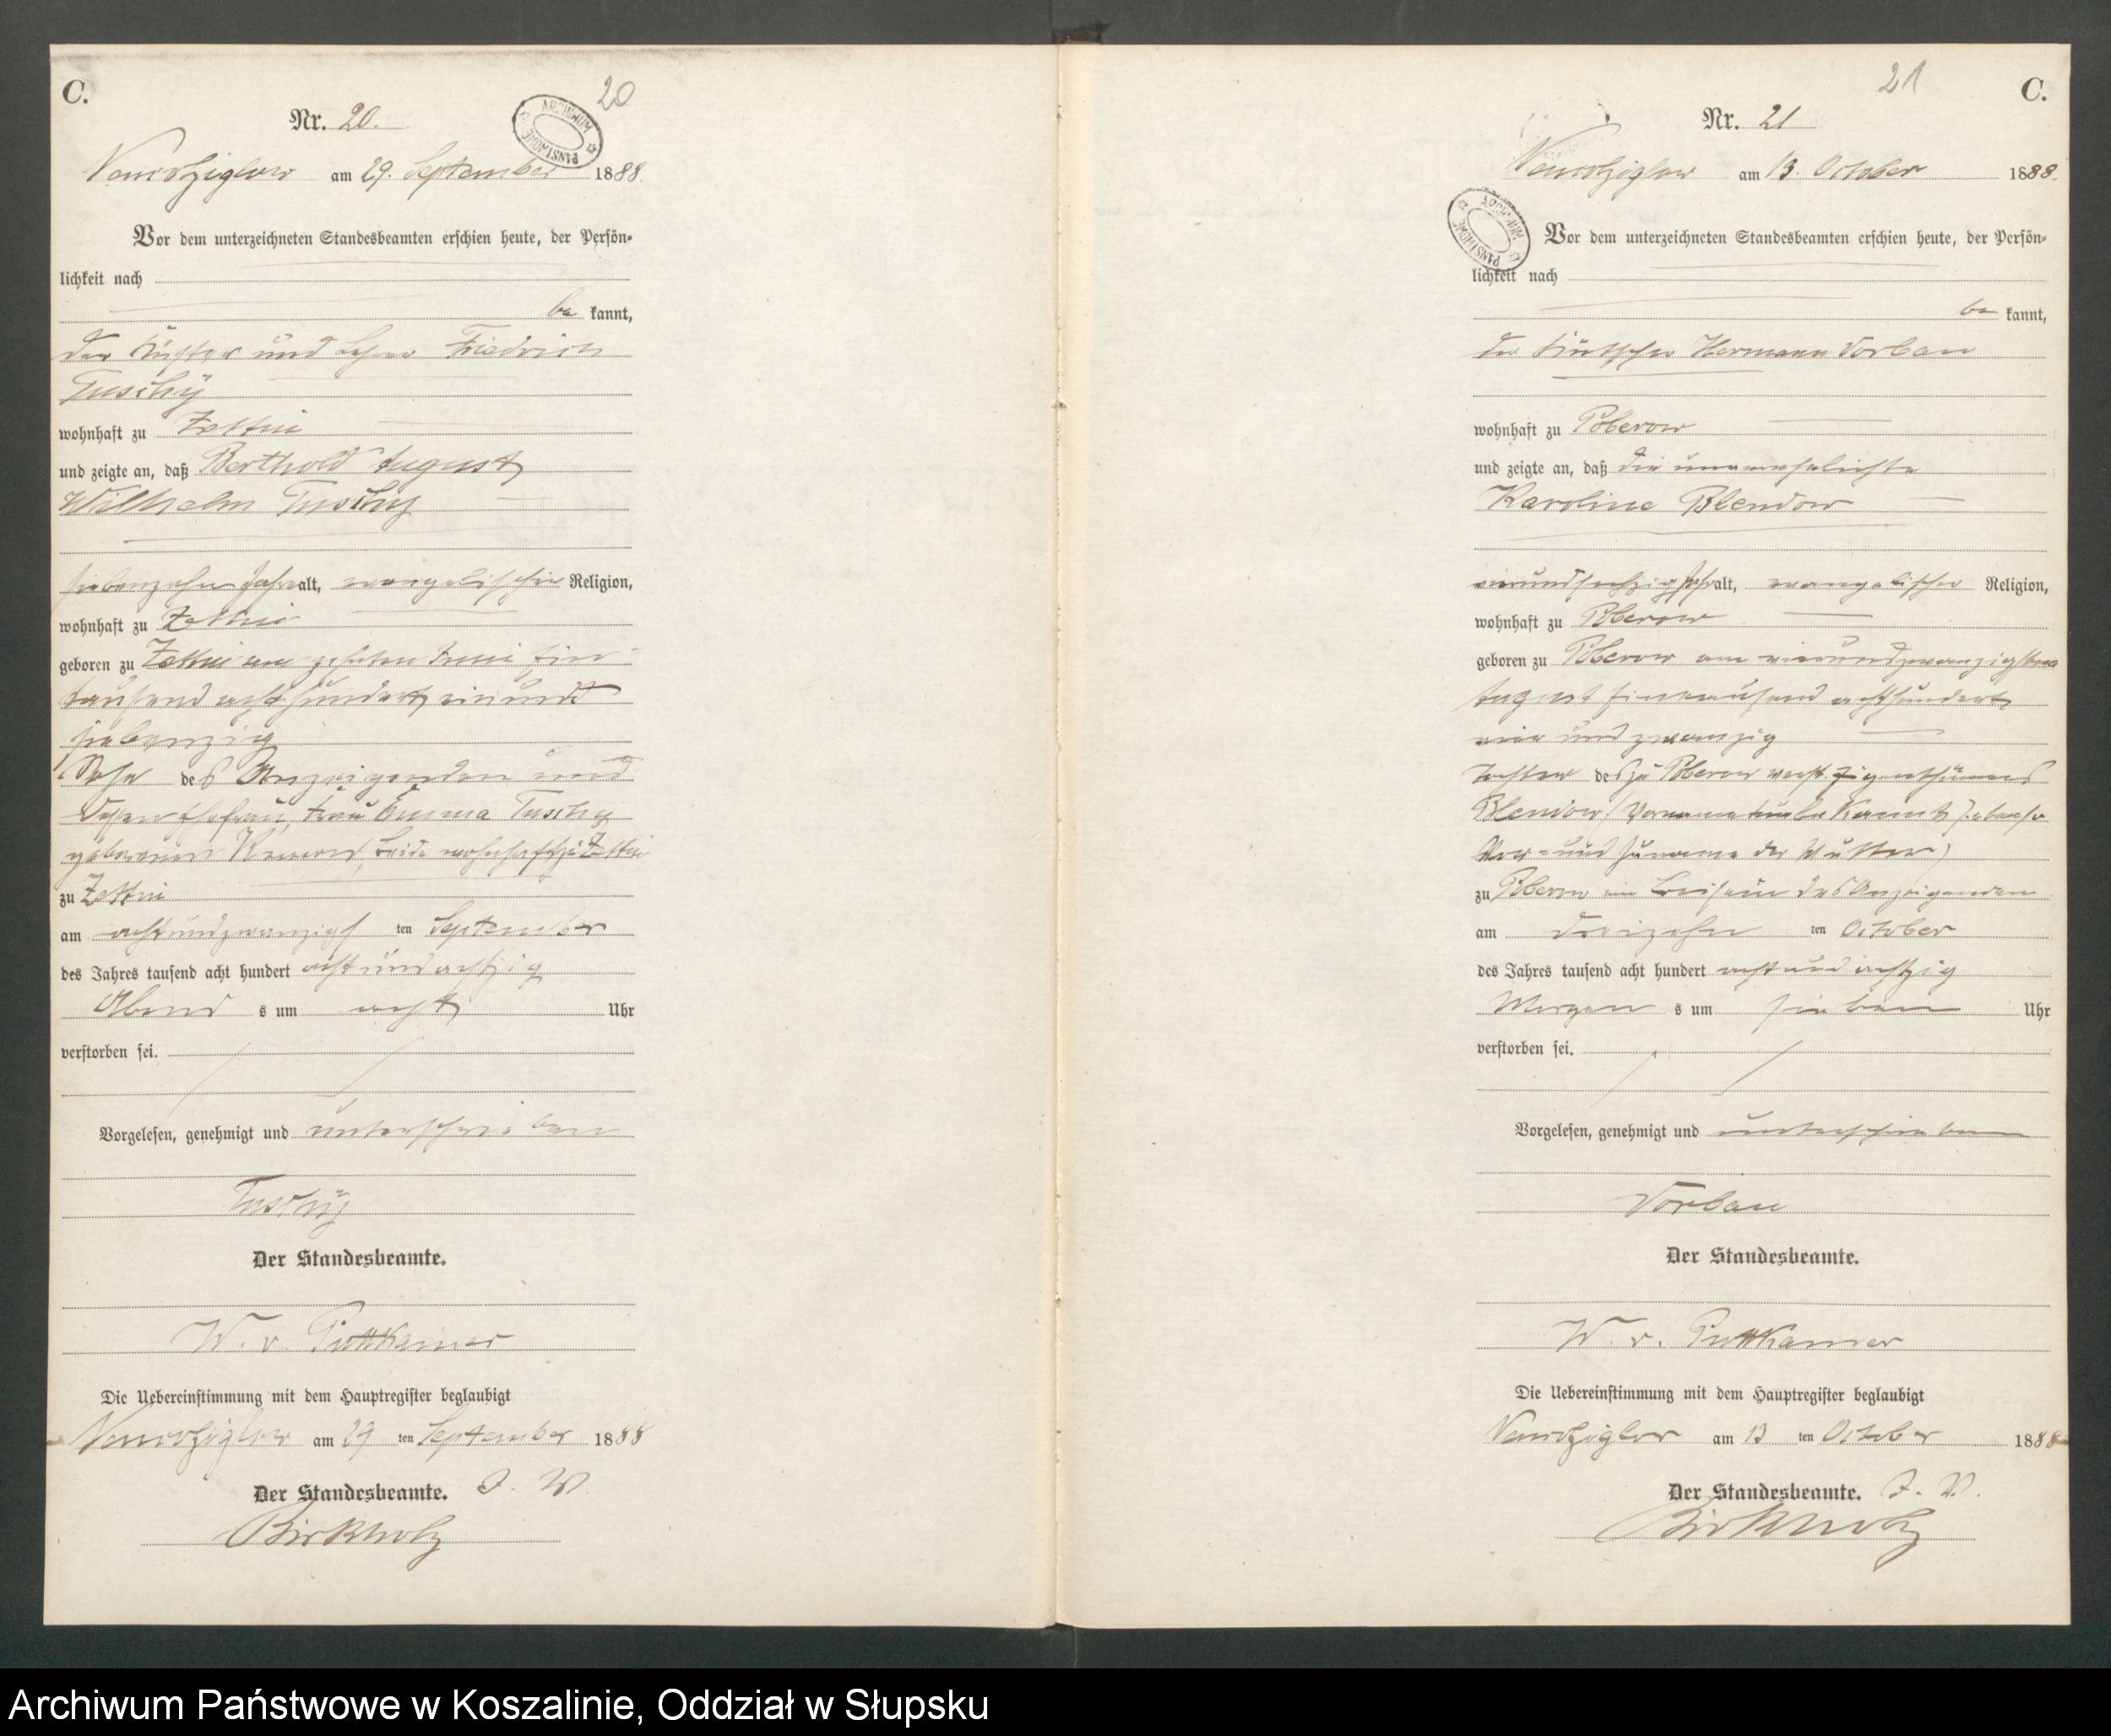 C.
20
Nr. 20.
ARCHIWUM PAŃSTWOWE
am 29. September 1888.
Vor dem unterzeichneten Standesbeamten erschien heute, der Persön-
lichkeit nach
be kannt,
der Küster und Lehrer Friedrich
Tuschy
wohnhaft zu Zettin
und zeigte an, daß Berthold August
Wilhelm Tuschy
siebenzehn Jahre alt, evangelischer Religion,
wohnhaft zu Zettin
geboren zu Zettin am zehnten Juni ein-
tausend achthundert ein und
siebenzig
Sohn des Anzeigenden und
dessen Ehefrau, Frau Emma Tuschy
geborenen beide wohnhaft zu Zettin
zu Zettin
am achtundzwanzigs ten September
des Jahres tausend acht hundert acht und achtzig
Abend s um acht Uhr
verstorben sei.
Vorgelesen, genehmigt und unterschrieben
Tuschy
Der Standesbeamte.
W. v. Puttkamer
Die Uebereinstimmung mit dem Hauptregister beglaubigt
am 29 ten September 1888
Der Standesbeamte. I. V.
Birkholz
21
C.
Nr. 21
am 13. October 1888.
ARCHIWUM PAŃSTWOWE
Vor dem unterzeichneten Standesbeamten erschien heute, der Persön-
lichkeit nach
be kannt,
der Hermann Vorbau
wohnhaft zu Poberow
und zeigte an, daß die unverehelichte
Karoline Blendow
vierundsechzig Jahr alt, evangelischer Religion,
wohnhaft zu Poberow
geboren zu Poberow am vierundzwanzigsten
August eintausend achthundert
vier und zwanzig
Tochter des zu Poberow verst. Eigenthümers
Blendow (Vorname unbekannt, ebenso
Vor- und Zuname der Mutter)
zu Poberow im Beisein des Anzeigenden
am dreizehn ten October
des Jahres tausend acht hundert acht und achtzig
Morgen s um sieben Uhr
verstorben sei.
Vorgelesen, genehmigt und unterschrieben
Vorbau
Der Standesbeamte.
W. v. Puttkamer
Die Uebereinstimmung mit dem Hauptregister beglaubigt
am 13 ten October 1888
Der Standesbeamte. I. V.
Birkholz
Archiwum Państwowe w Koszalinie, Oddział w Słupsku